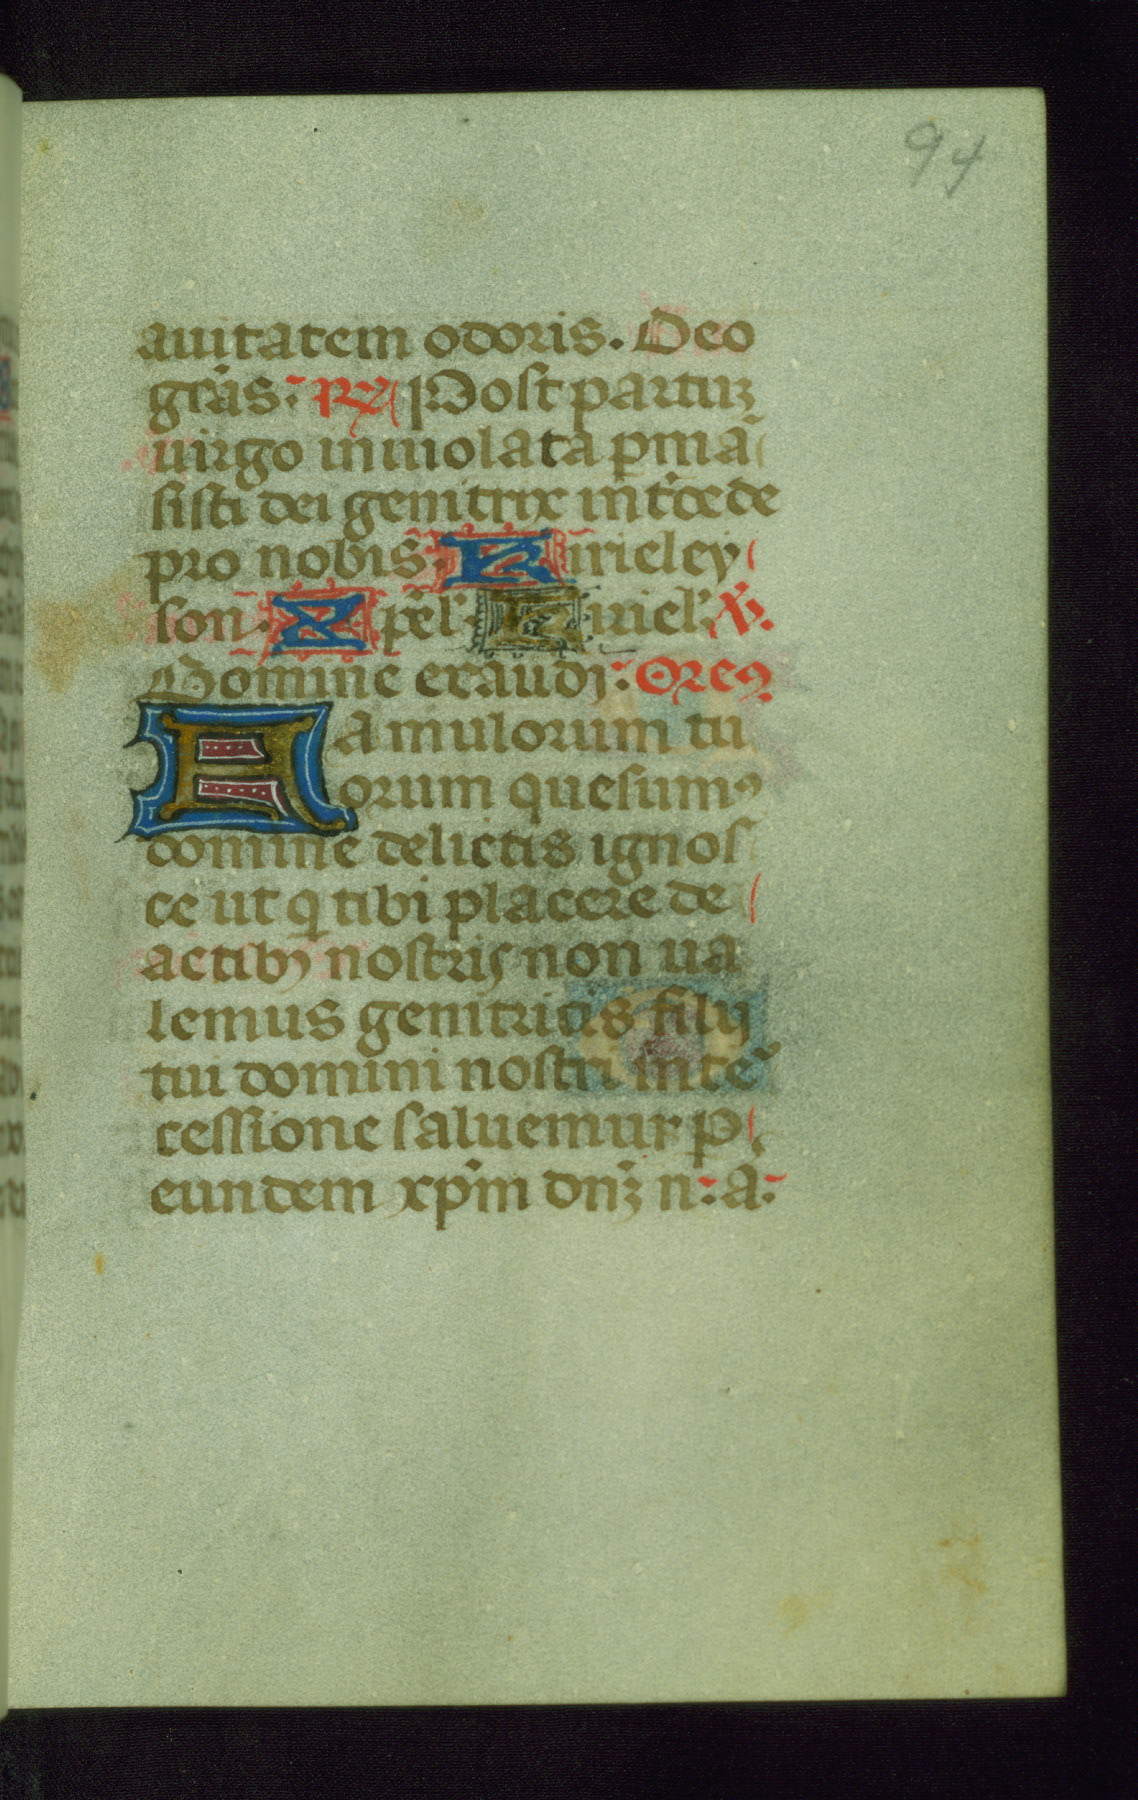 94
auitatem odoris. Deo
gr̃as: R̸ Post partuꝫ
uirgo inuiolata ꝑmã
sisti dei genitrix int̃cede
pro nobis. Kirieley
son. Xpel̃. Kiriel̃. V̸.
Domine exaudi: Oreꝰ
Famulorum tu
orum quesumꝰ
domine delictis ignos
ce ut q tibi placere de
actibꝫ nostris non ua
lemus genitricis filij
tui domini nostri inte
cessione saluemur ꝑ
eundem xp̃m dñꝫ n: a: